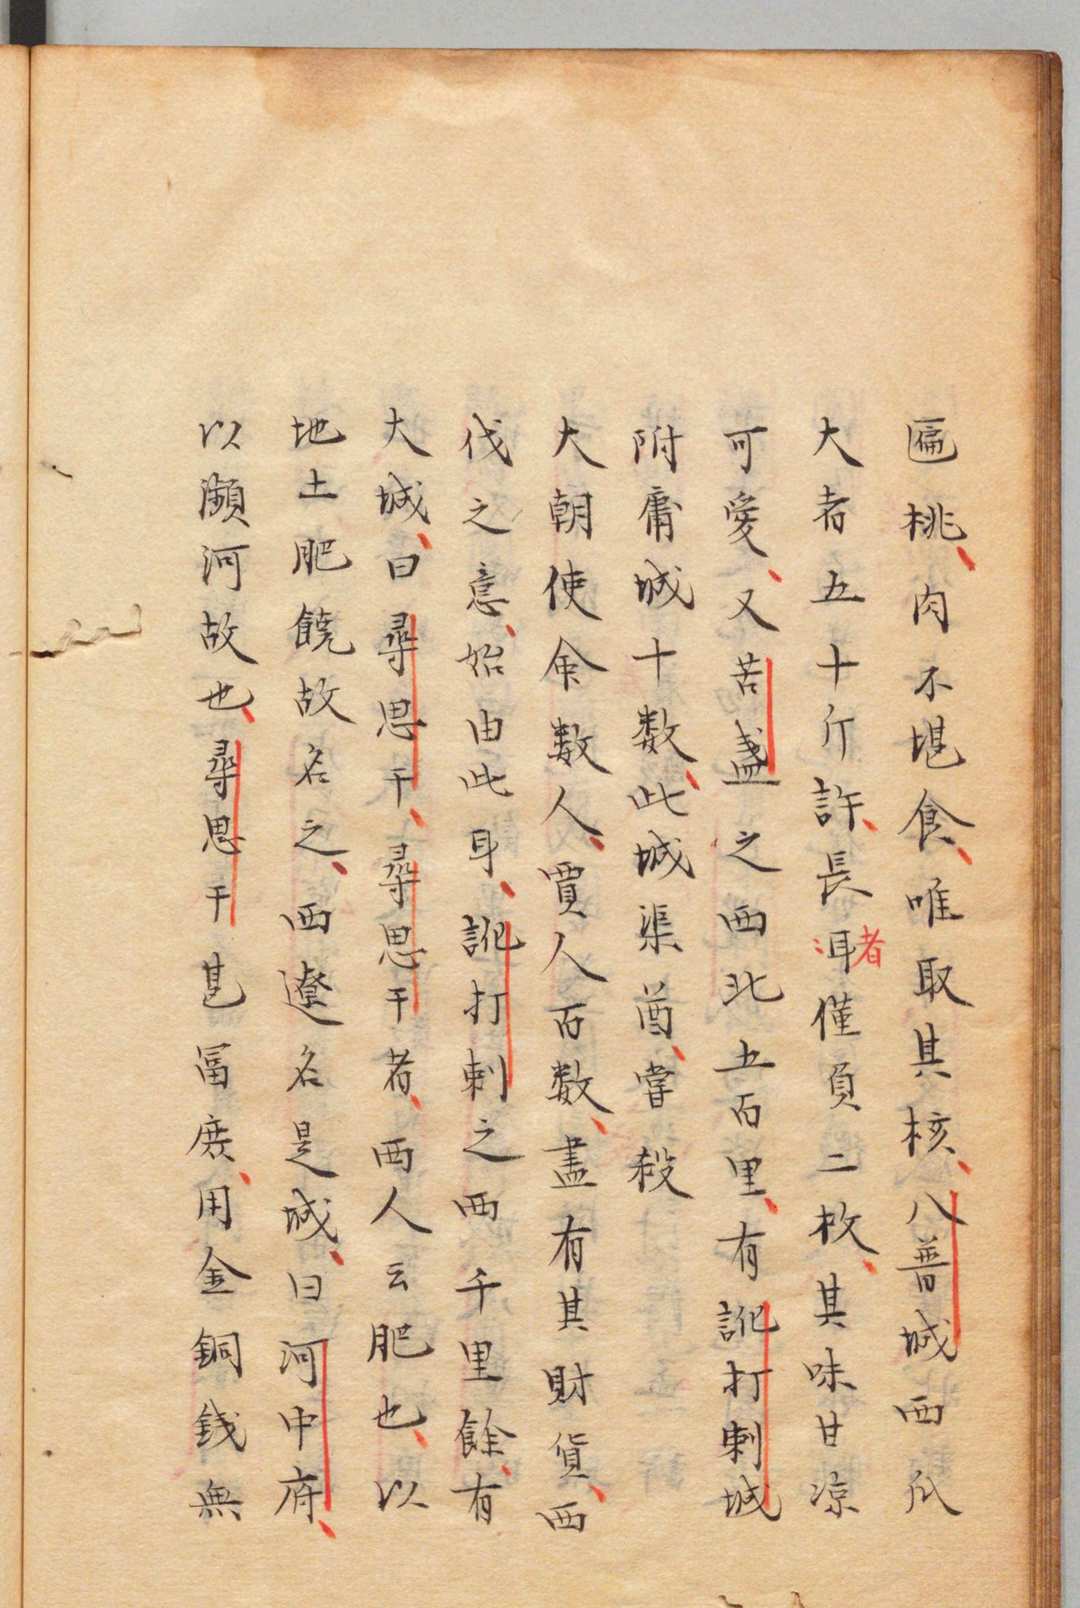 匾桃肉不堪食唯取其核八普城西瓜
大者五十斤許長耳僅負二枚其味甘凉
者
可愛又苦盞之西北五百里有訛打剌城
附庸城十数此城渠酋嘗殺
大朝使余数人賈人百数盡有其財貨西
伐之意始由此耳訛打剌之西千里餘有
大城曰尋思干尋思干者西人云肥也以
地土肥饒故名之西遼名是城曰河中府
以瀕河故也尋思干甚冨庶用金銅錢無